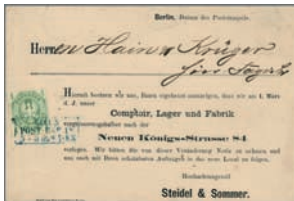 Berlin, Datum des Poststempels.
Herren Hain & Krüger
hier
Hierdurch beehren wir uns, Ihnen ergebenst anzuzeigen, dass wir am 1. März
d. J. unser
Comptoir, Lager und Fabrik
nach der
Neuen Königs-Strasse 84
verlegen. Wir bitten Sie von dieser Veränderung Notiz zu nehmen und
uns auch mit Ihren schätzbaren Aufträgen in das neue Local zu folgen.
Hochachtungsvoll
Steidel & Sommer.